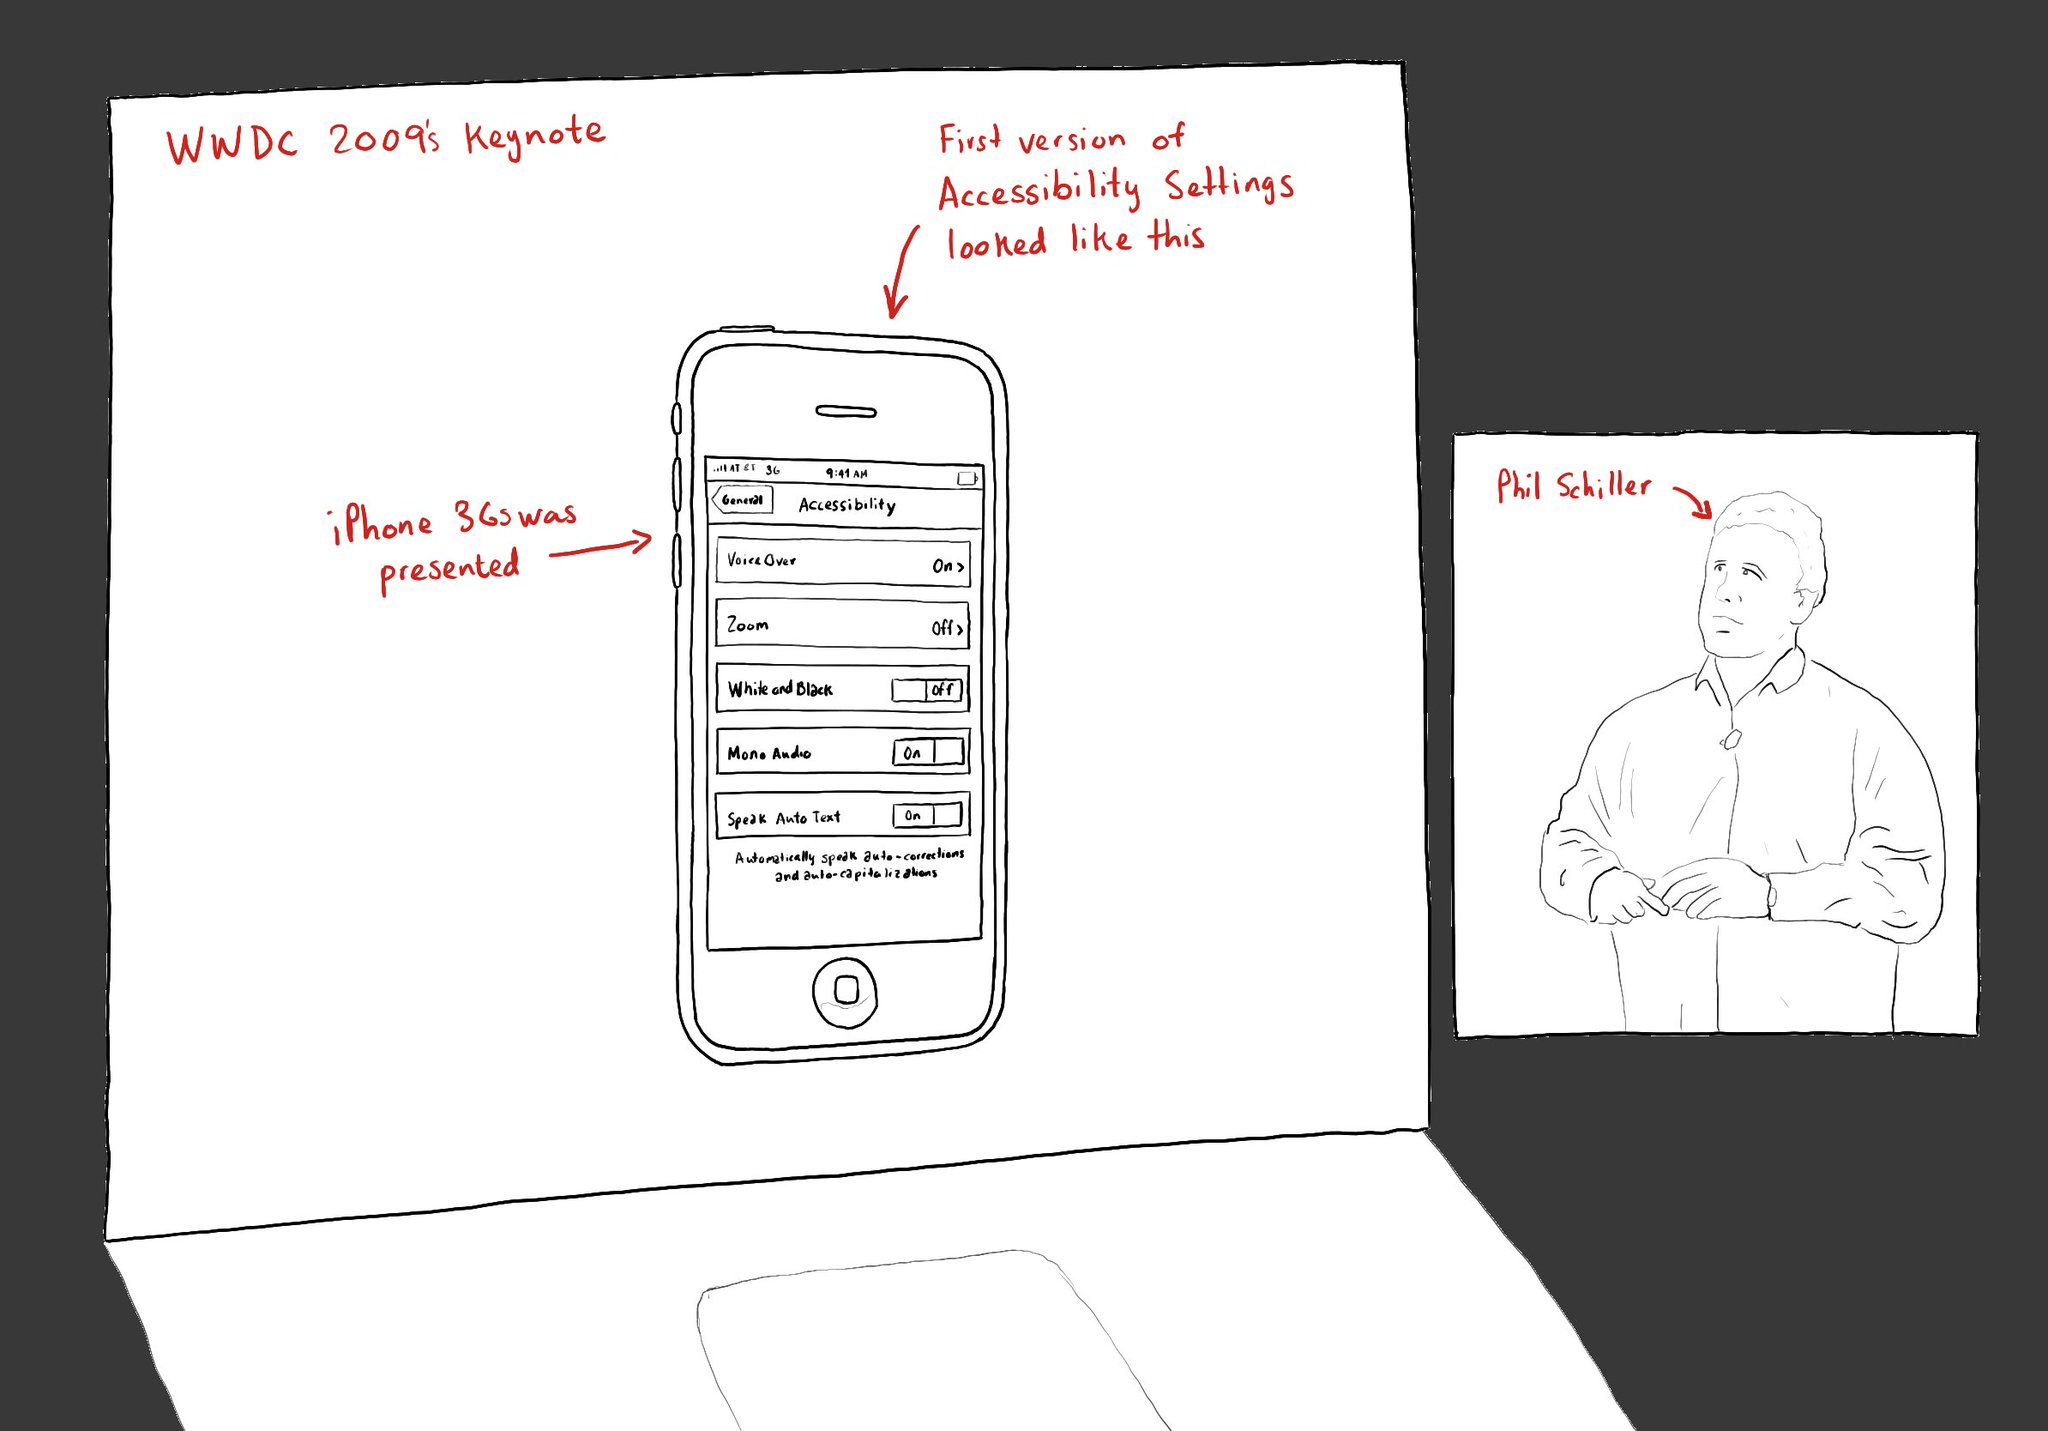 WWDC 2009's Keynote
First version of
Accessibility Settings
looked like this
iPhone 3Gs was
presented
AT&T 3G 9:41 AM
General Accessibility
VoiceOver On >
Zoom Off >
White and Black Off
Mono Audio On
Speak Auto Text On
Automatically speak auto-corrections
and auto-capitalizations
Phil Schiller